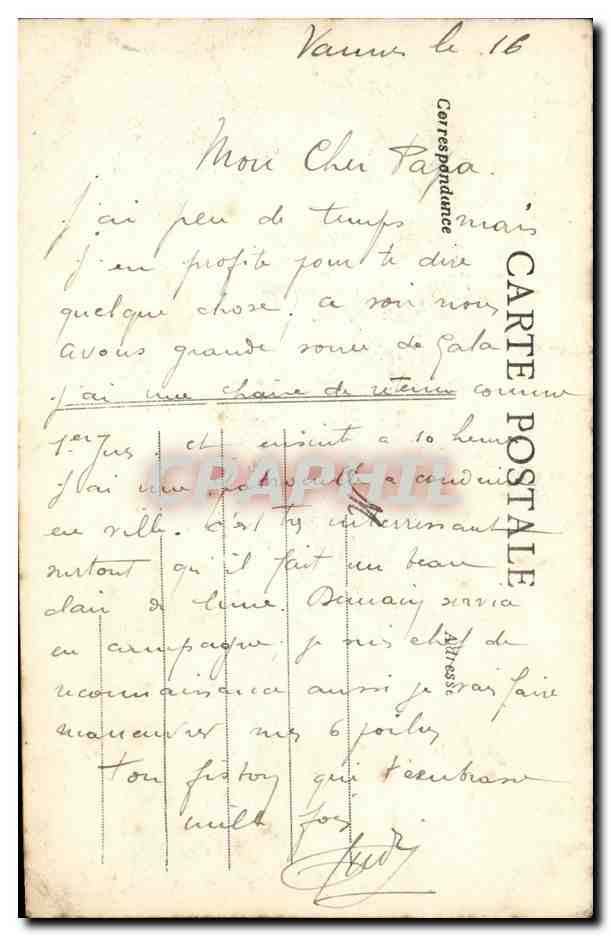 Vannes le 16
Mon Cher Papa.
j'ai peu de temps mais
j'en profite pour te dire
quelque chose, a soir nous
avons grande soirée de Gala
j'ai une chaise de retenu comme
1er Jus. et ensuite a 10 heures
j'ai une patrouille a conduire
en ville. c'est très interressant
surtout qu'il fait un beau
clair de lune. Demain service
en campagne, je suis chef de
reconnaissance aussi je vais faire
manœuvrer mes 6 poilus
Ton fiston qui t'embrasse
mille fois
Correspondance
CARTE POSTALE
Adresse
M
CPAPHIL